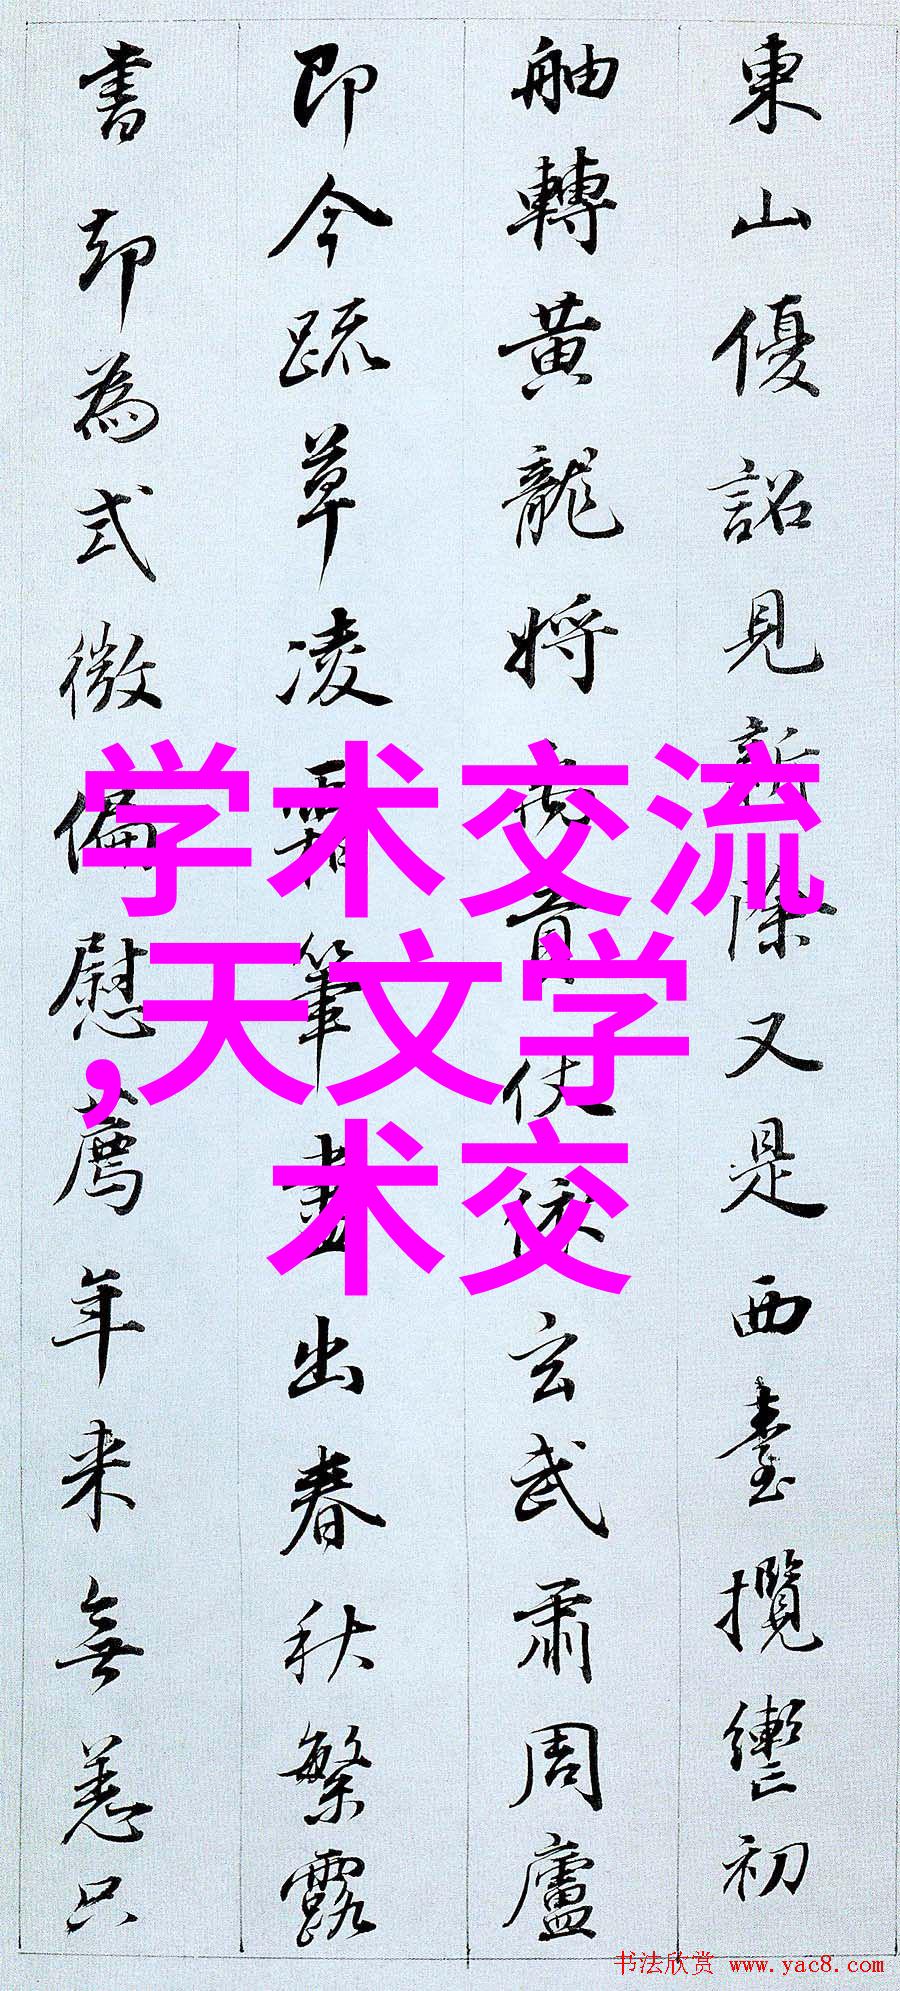 東山優詔見新除又是西臺攬轡初
舳轉黃龍將首仗依玄武肅周廬
即今疏草凌霜筆出春秋繁露
書却為式微偏慰薦年来無恙只
学术交流
,天文学
术交
书法欣赏 www.yac8.com